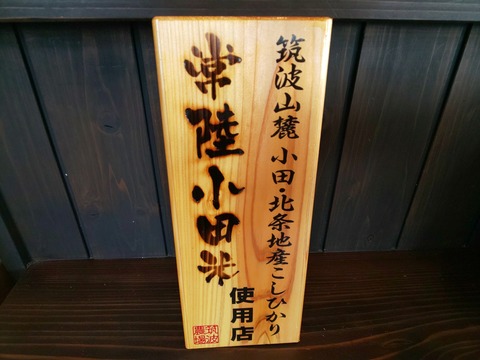 筑波山麓 小田・北条地産こしひかり
常陸小田米
使用店
筑波
農場